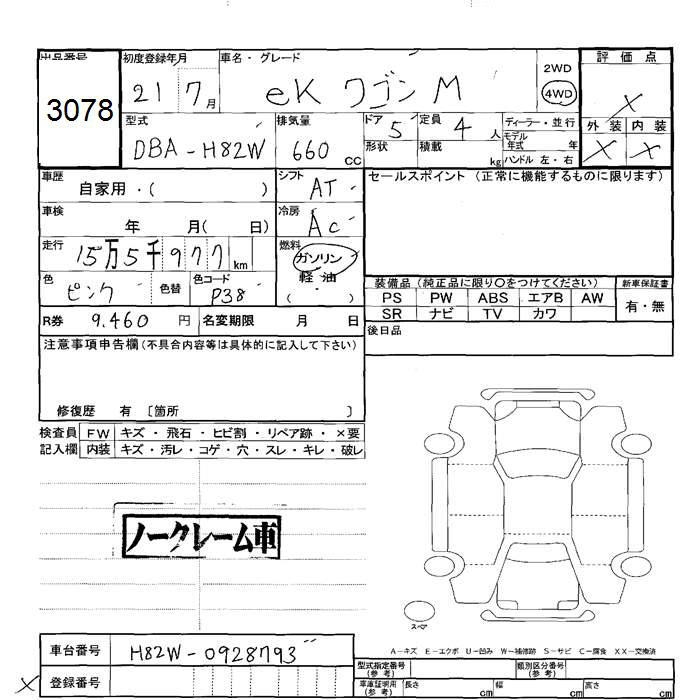 出品番号 初度登録年月 車名・グレード 2WD 評価点
3078 21 7月 eK ワゴン M 4WD X
型式 排気量 ドア 5 定員 4人 ディーラー・並行 外装 内装
DBA-H82W 660 cc 形状 積載 kg モデル年式 年 X X
ハンドル 左・右
車歴 自家用・( ) シフト AT セールスポイント (正常に機能するものに限ります)
車検 年 月( 日) 冷房 AC
走行 15万5千977km 燃料 ガソリン
軽油
( ・ )
色 ピンク 色替 色コード P38 装備品 (純正品に限り○をつけてください) 新車保証書
PS PW ABS エアB AW 有・無
SR ナビ TV カワ
R券 9.460円 名変期限 月 日 後日品
注意事項申告欄(不具合内容等は具体的に記入して下さい)
修復歴 有 〔箇所 〕
検査員 FW キズ・飛石・ヒビ割・リペア跡・×要
記入欄 内装 キズ・汚レ・コゲ・穴・スレ・キレ・破レ
ノークレーム車
スペア
A-キズ E-エクボ U-凹み W-補修跡 S-サビ C-腐食 XX-交換済
車台番号 H82W-0928793
X 登録番号
型式指定番号(参考) 類別区分番号(参考)
車庫証明用(参考) 長さ cm 幅 cm 高さ cm